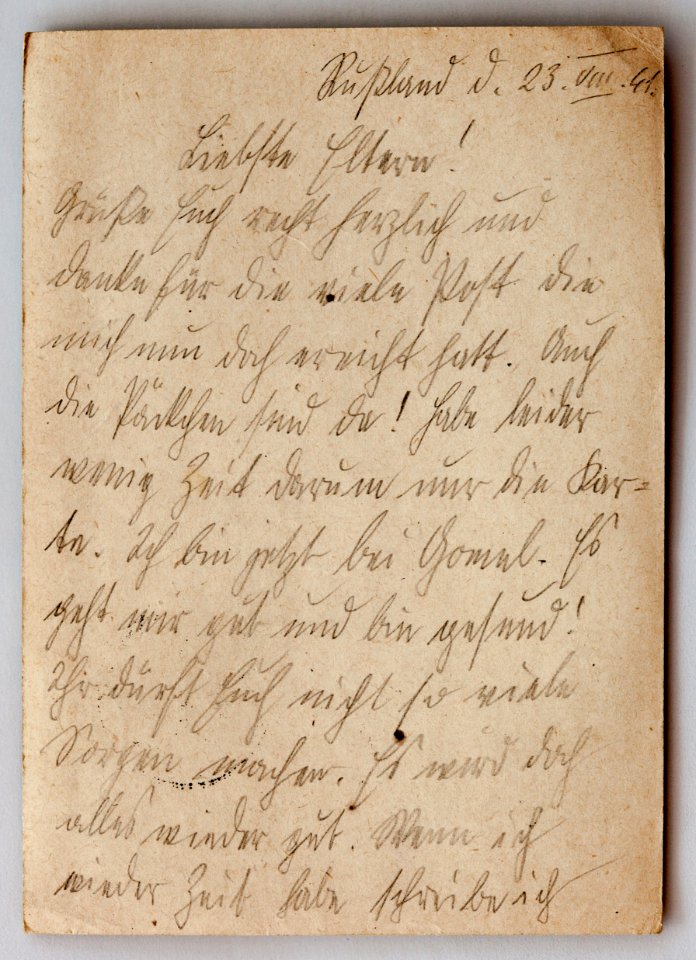 Rußland d. 23. VIII. 41.
Liebste Eltern!
Grüße Euch recht herzlich und
danke für die viele Post die
mich nun doch erreicht hatt. Auch
die Päckchen sind da! Habe leider
wenig Zeit darum nur die Kar=
te. Ich bin jetzt bei Gomel. Es
geht mir gut und bin gesund!
Ihr dürft Euch nicht so viele
Sorgen machen. Es wird doch
alles wieder gut. Wenn ich
wieder Zeit habe schreibe ich